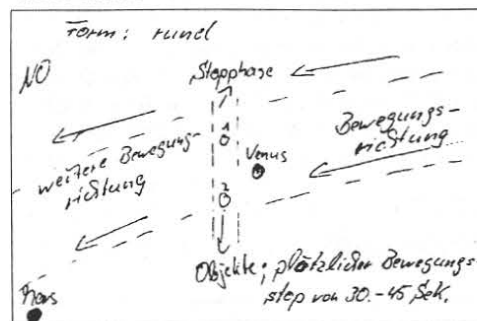 Form: rund
NO
Stopphase
1
Bewegungs-
richtung
Venus
weitere Bewegung-
richtung
2
Objekte; plötzlicher Bewegungs-
stop von 30.-45 Sek.